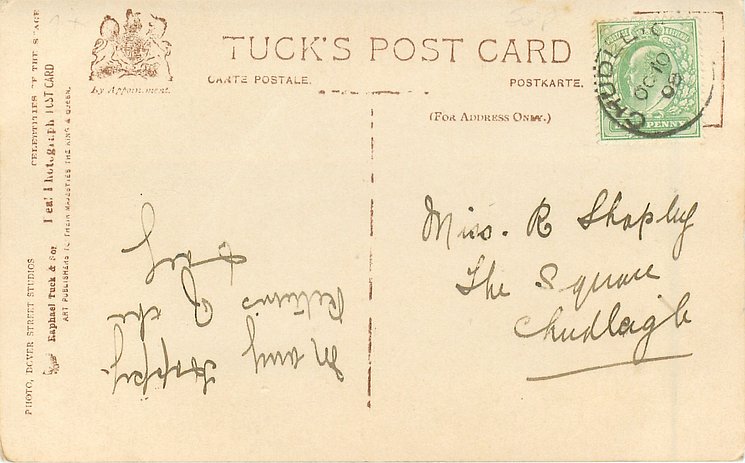 TUCK'S POST CARD
CARTE POSTALE.
POSTKARTE.
(FOR ADDRESS ONLY.)
By Appointment.
CHUDLEIG
OC 10
08
PENNY
Miss. R Shapley
The Square
Chudleigh
Many Happy
Returns of the
Day
PHOTO, DOVER STREET STUDIOS
CELEBRITIES OF THE STAGE
Raphael Tuck & Sons Real Photograph POST CARD
ART PUBLISHERS TO THEIR MAJESTIES THE KING & QUEEN.